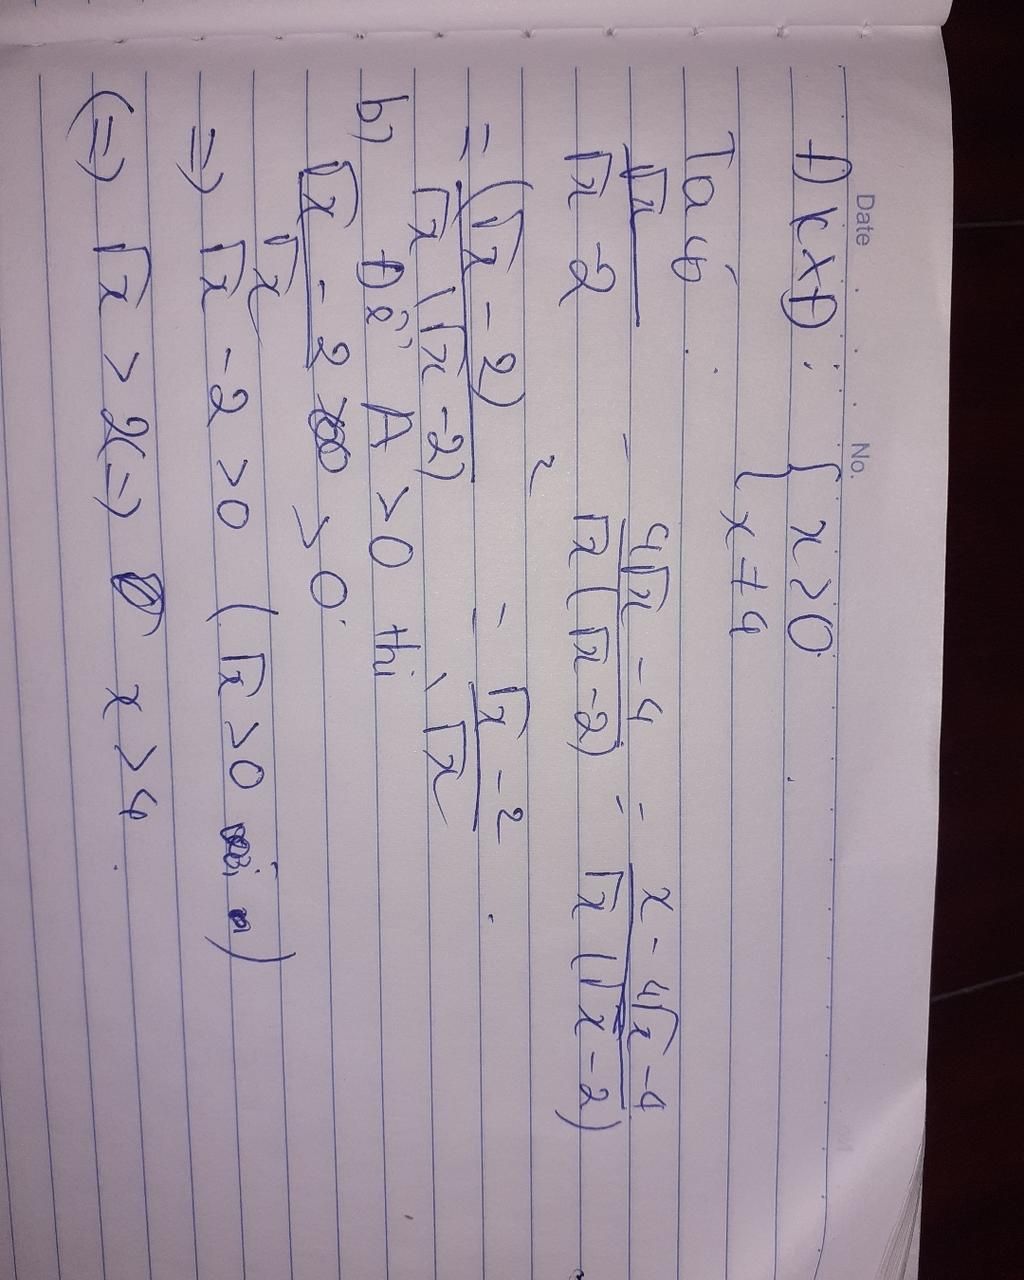 Date No.
ĐKXĐ: { x > 0
{ x ≠ 4
Ta có
√x / (√x - 2) - (4√x - 4) / (√x (√x - 2)) = (x - 4√x - 4) / (√x (√x - 2))
= (√x - 2)² / (√x (√x - 2)) = (√x - 2) / √x .
b) Để A > 0 thì
(√x - 2) / √x > 0
=> √x - 2 > 0 (√x > 0)
(=) √x > 2 (=) x > 4